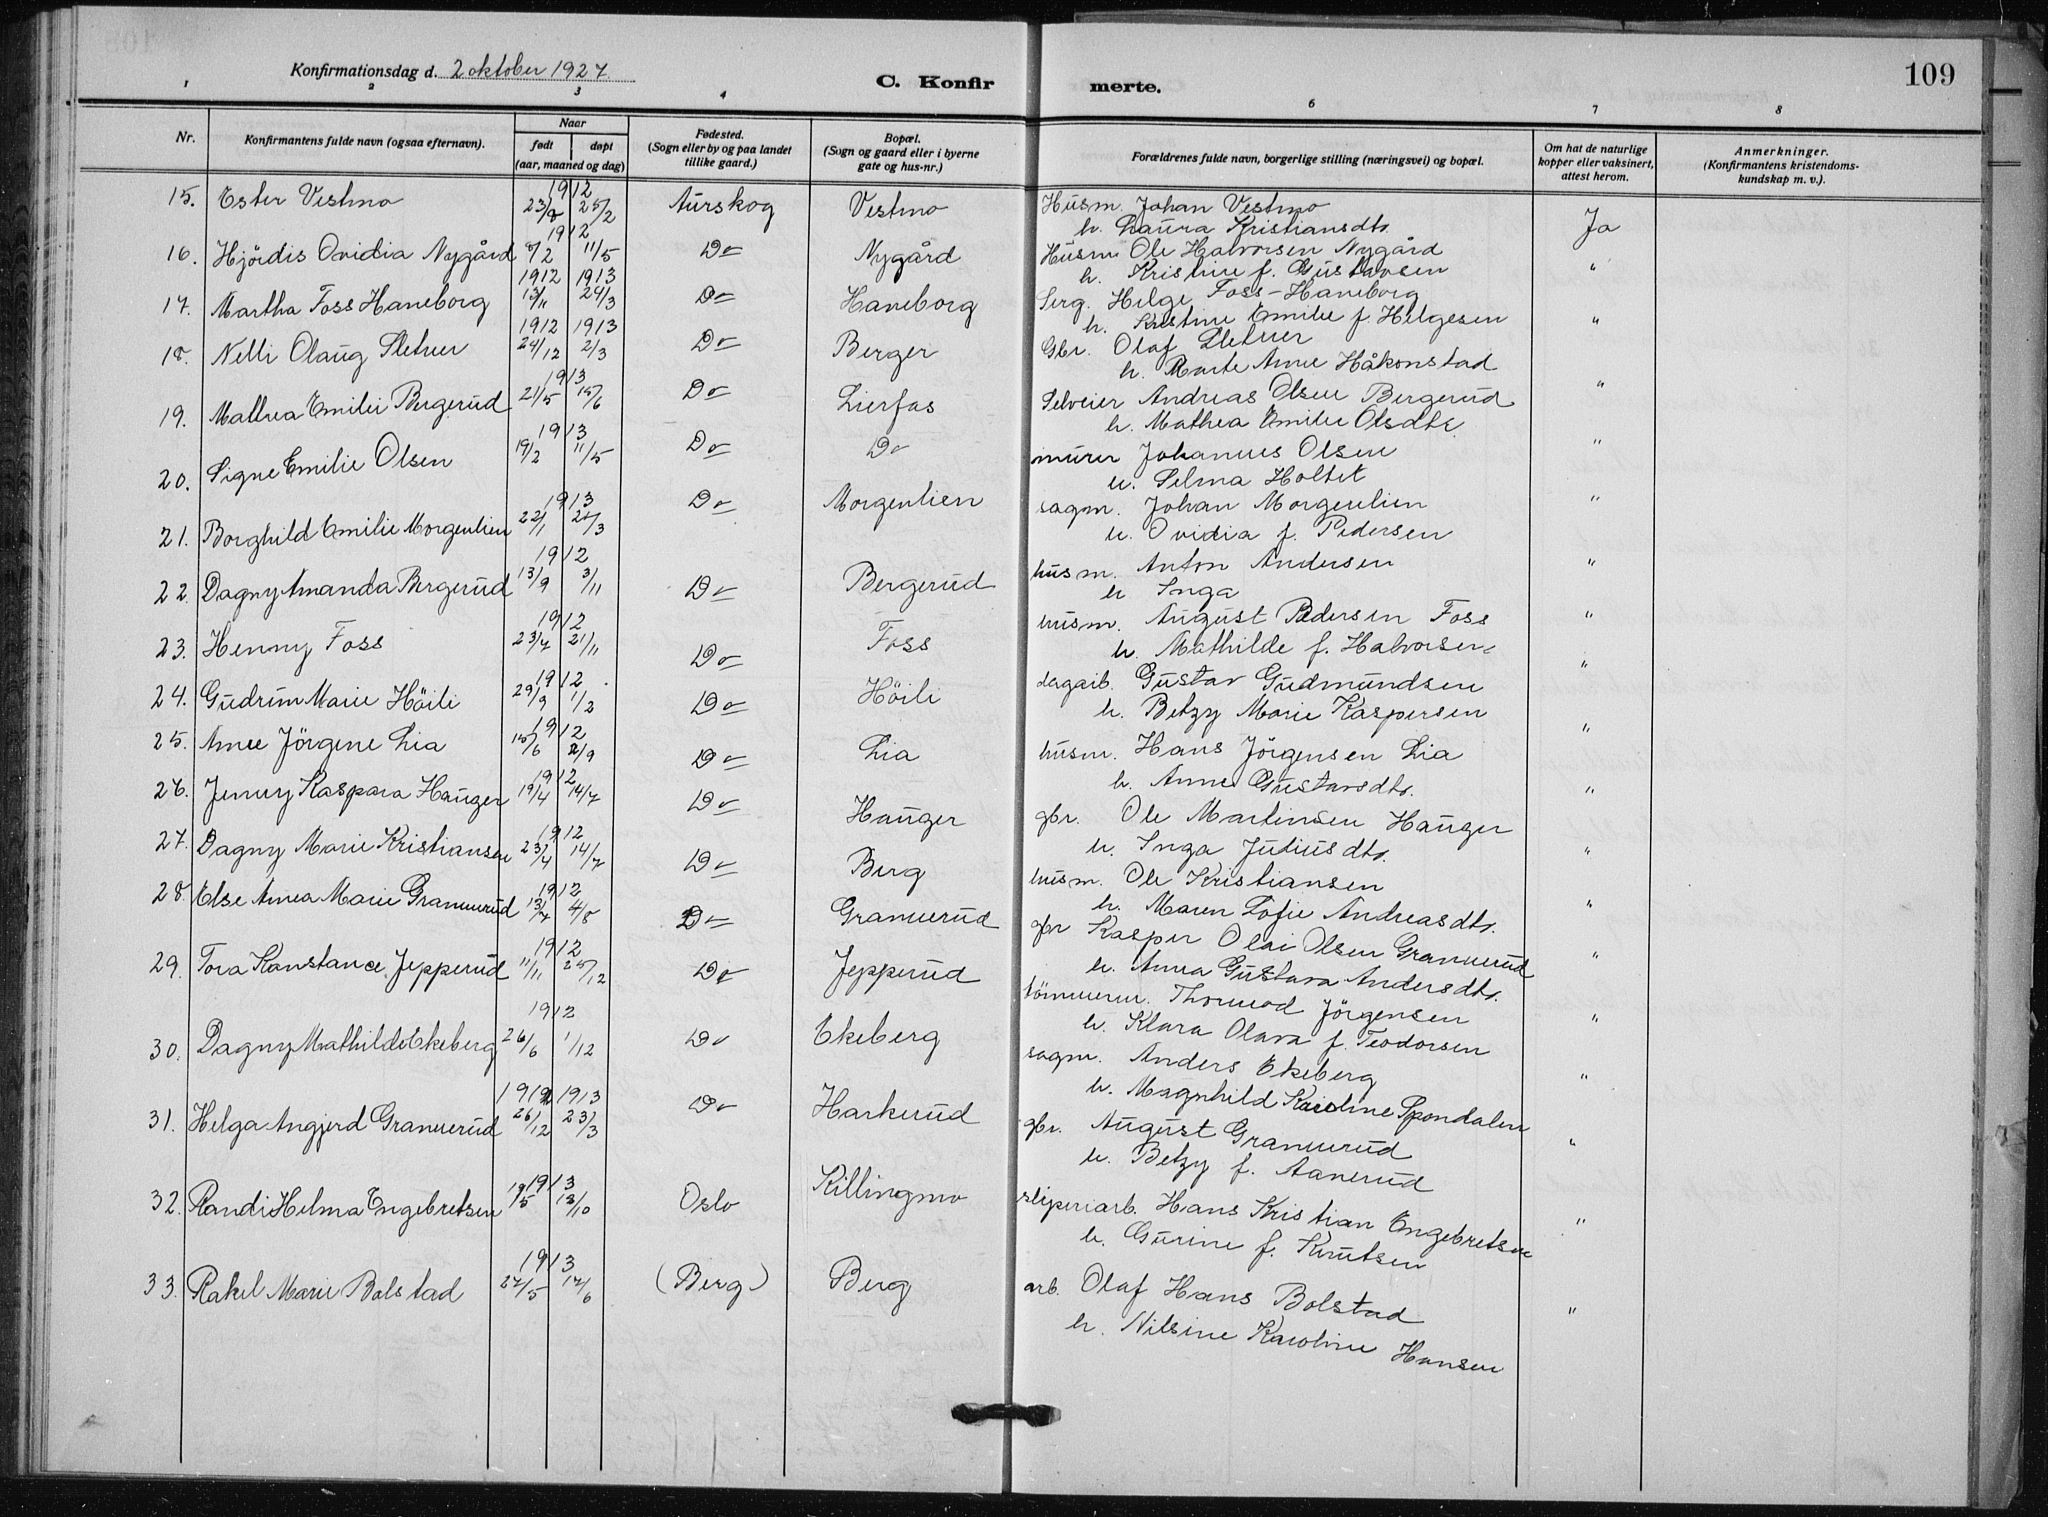 109
Konfirmationsdag d. 2 oktober 1927
C. Konfirmerte.
1 2 3 4 6 7 8
Nr.
Konfirmantens fulde navn (ogsaa efternavn).
Naar
født døpt
(aar, maaned og dag)
Fødested.
(Sogn eller by og paa landet
tillike gaard.)
Bopæl.
(Sogn og gaard eller i byerne
gate og hus-nr.)
Forældrenes fulde navn, borgerlige stilling (næringsvei) og bopæl.
Om hat de naturlige
kopper eller vaksinert,
attest herom.
Anmerkninger.
(Konfirmantens kristendoms-
kundskap m. v.).
15. Ester Vestmo 1912 23/8 25/2 Aurskog Vestmo Husm. Johan Vestmo Ja
h. Laura Kristiansdtr.
16. Hjördis Ovidia Nygård 1912 11/5 Do Nygård Husm. Ole Halvorsen Nygård "
h. Kristine f. Gustavsen
17. Martha Foss Haneborg 1912 1913 13/11 24/3 Do Haneborg Serg. Helge Foss-Haneborg "
h. Kristine Emilie f. Helgesen
18. Nelli Olaug Sletner 1912 1913 24/12 2/3 Do Berger Gbr. Olaf Sletner "
h. Marte Anne Håkonstad
19. Mathea Emilie Bergerud 1913 21/5 15/6 Do Lierfas Selveier Andreas Olsen Bergerud "
h. Mathea Emilie Olsdtr.
20. Signe Emilie Olsen 1913 19/2 11/5 Do Do murer Johannes Olsen "
h. Selma Holtet
21. Borghild Emilie Morgenlien 1913 22/1 /3 Do Morgenlien sagm. Johan Morgenlien "
h. Ovidia f. Pedersen
22. Dagny Amanda Bergerud 1912 13/9 3/11 Do Bergerud husm. Anton Andersen "
h Inga
23. Henny Foss 1912 23/7 21/11 Do Foss husm. August Pedersen Foss "
h. Mathilde f. Halvorsen
24. Gudrun Marie Höili 1912 29/9 1/2 Do Höili Gustav Gudmundsen "
h. Betzy Marie Kaspersen
25. Anne Jörgine Lia 1912 15/6 2/9 Do Lia husm. Hans Jörgensen Lia "
h. Anne Gustavsdtr.
26. Jenny Kaspara Hauger 1912 19/4 14/7 Do Hauger gbr. Ole Martinsen Hauger "
h. Inga Juliusdtr.
27. Dagny Marie Kristiansen 1912 23/4 14/7 Do Berg husm. Ole Kristiansen "
h. Maren Sofie Andreasdtr.
28. Else Annea Marie Grannerud 1912 13/7 4/8 Do Grannerud gbr Kasper Olai Olsen Grannerud "
h. Anna Gustava Andersdtr.
29. Tora Konstance Jepperud 1912 11/11 25/12 Do Jepperud tömmerm. Thormod Jörgensen "
h. Klara Olava f. Teodorsen
30. Dagny Mathilde Ekeberg 1912 26/6 1/12 Do Ekeberg sagm. Anders Ekeberg "
h. Magnhild Karoline Spondalen
31. Helga Angjerd Grannerud 1912 1913 26/12 23/3 Do Harkerud gbr. August Grannerud "
h. Betzy f. Aanerud
32. Randi Helma Engebretsen 1913 /5 /10 Oslo Killingmo sliperiarb. Hans Kristian Engebretsen "
h. Gurine f. Knutsen
33. Rakel Marie Bolstad 1913 27/5 17/6 (Berg) Berg arb. Olaf Hans Bolstad "
h. Nilsine Karoline Hansen